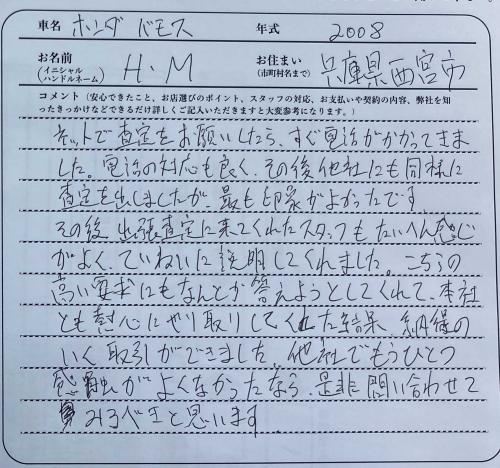 車名 ホンダ バモス 年式 2008
お名前 (イニシャル ハンドルネーム) H.M お住まい (市町村名まで) 兵庫県西宮市
コメント (安心できたこと、お店選びのポイント、スタッフの対応、お支払いや契約の内容、弊社を知
ったきっかけなどできるだけ詳しくご記入いただきますと大変参考になります。)
ネットで査定をお願いしたら、すぐ電話がかかってきま
した。電話の対応も良く、その後他社にも同様に
査定を出しましたが、最も印象がよかったです
その後、出張査定に来てくれたスタッフもたいへん感じ
がよく、ていねいに説明してくれました。こちらの
高い要求にもなんとか答えようとしてくれて、本社
とも熱心にやり取りしてくれた結果、納得の
いく取引ができました。他社でもうひとつ
感触がよくなかったなら、是非問い合わせて
みるべきと思います